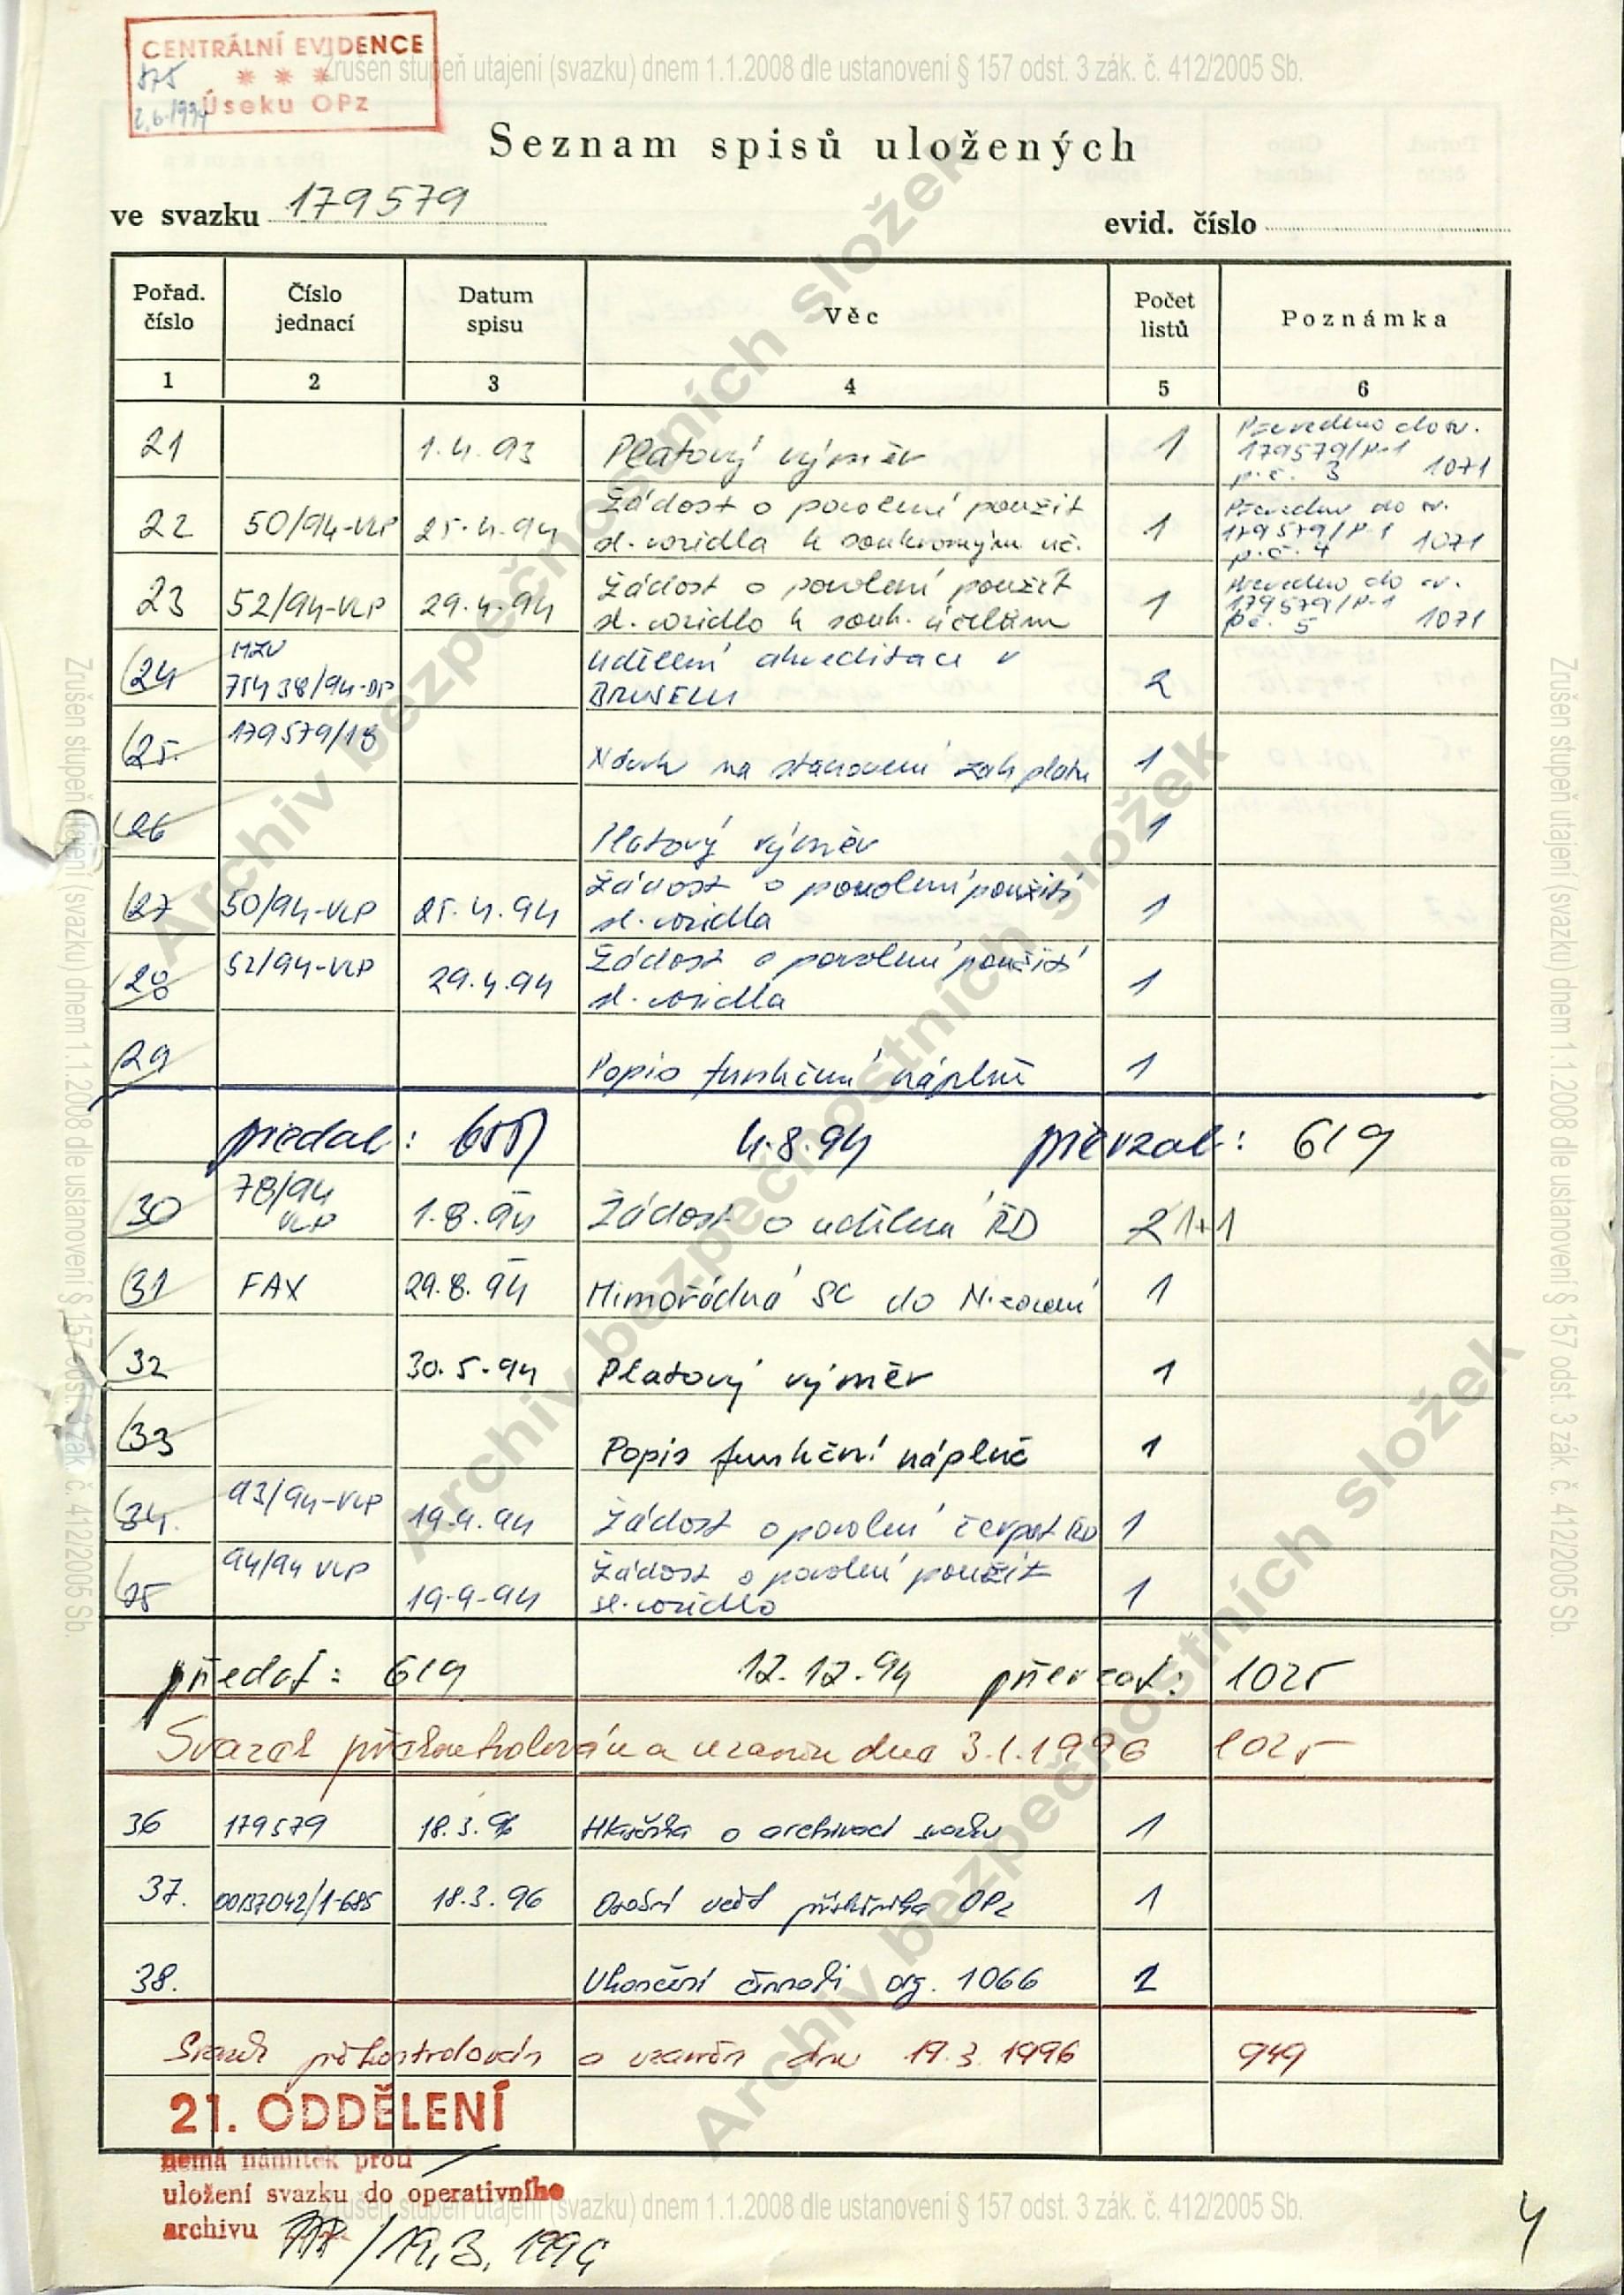 CENTRÁLNÍ EVIDENCE
575 * * *
2.6.1994 Úseku OPz
Zrušen stupeň utajení (svazku) dnem 1.1.2008 dle ustanovení § 157 odst. 3 zák. č. 412/2005 Sb.
Seznam spisů uložených
ve svazku 179579 evid. číslo
Pořad. číslo Číslo jednací Datum spisu Věc Počet listů Poznámka
1 2 3 4 5 6
21 1.4.93 Platový výměr 1 Převedeno do sv. 179579/P-1 p.č. 3 1071
22 50/94-VLP 25.4.94 Žádost o povolení použít sl. vozidla k soukromým úč. 1 Převedeno do sv. 179579/P-1 p.č. 4 1071
23 52/94-VLP 29.4.94 Žádost o povolení použít sl. vozidlo k souk. účelům 1 Převedeno do sv. 179579/P-1 p.č. 5 1071
24 MZV 75438/94-DP Udělení akreditace v BRUSELU 2
25. 179579/18 Návrh na stanovení zah platu 1
26 Platový výměr 1
27 50/94-VLP 25.4.94 Žádost o povolení použití sl. vozidla 1
28 52/94-VLP 29.4.94 Žádost o povolení použití sl. vozidla 1
29 Popis funkční náplně 1
předal: 4.8.94 převzal: 619
30 78/94 VLP 1.8.94 Žádost o udělení ŘD 2 1+1
31 FAX 29.8.94 Mimořádná SC do Nizozemí 1
32 30.5.94 Platový výměr 1
33 Popis funkční náplně 1
34. 93/94-VLP 19.9.94 Žádost o povolení čerpat ŘD 1
35 94/94 VLP 19.9.94 Žádost o povolení použít sl. vozidlo 1
předal: 619 12.12.94 převzal: 1025
Svazek překontrolován a uzavřen dne 3.1.1996 1025
36 179579 18.3.96 Hlášenka o archivaci svazku 1
37. 00137042/1-685 18.3.96 Osobní příslušníka OPz 1
38. Ukončení činnosti org. 1066 2
Svazek překontrolován a uzavřen dne 19.3.1996 949
21. ODDĚLENÍ
nemá námitek proti
uložení svazku do operativního
archivu /19.3.1996
4
Zrušen stupeň utajení (svazku) dnem 1.1.2008 dle ustanovení § 157 odst. 3 zák. č. 412/2005 Sb.
Zrušen stupeň utajení (svazku) dnem 1.1.2008 dle ustanovení § 157 odst. 3 zák. č. 412/2005 Sb.
Zrušen stupeň utajení (svazku) dnem 1.1.2008 dle ustanovení § 157 odst. 3 zák. č. 412/2005 Sb.
Archiv bezpečnostních složek
Archiv bezpečnostních složek
Archiv bezpečnostních složek